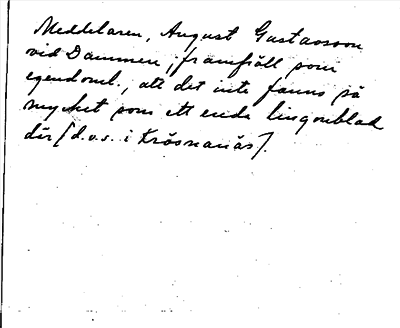 Meddelaren, August Gustavsson
vid Dammen, framhöll som
egendoml., att det inte fanns så
mycket som ett enda lingonblad
där [d.v.s. i Krösnanäs].